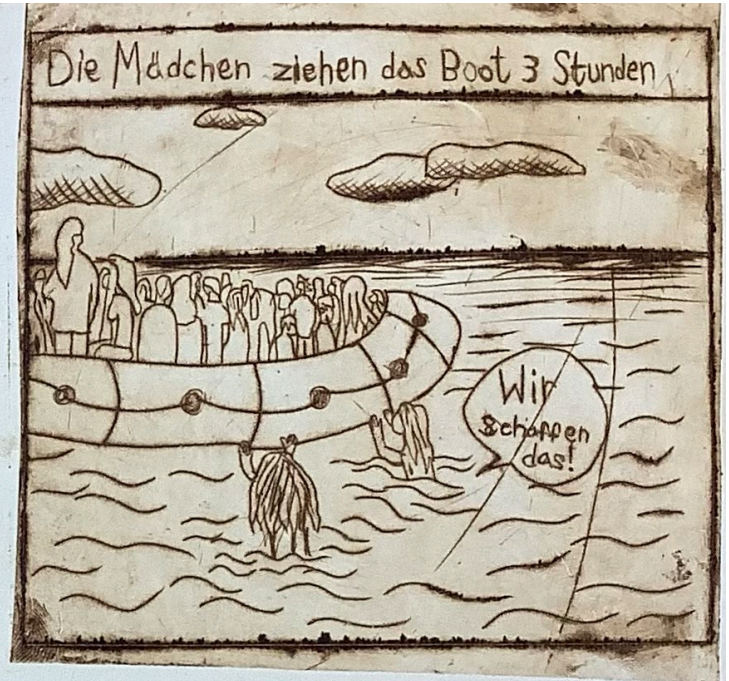 Die Mädchen ziehen das Boot 3 Stunden
Wir
schaffen
das!